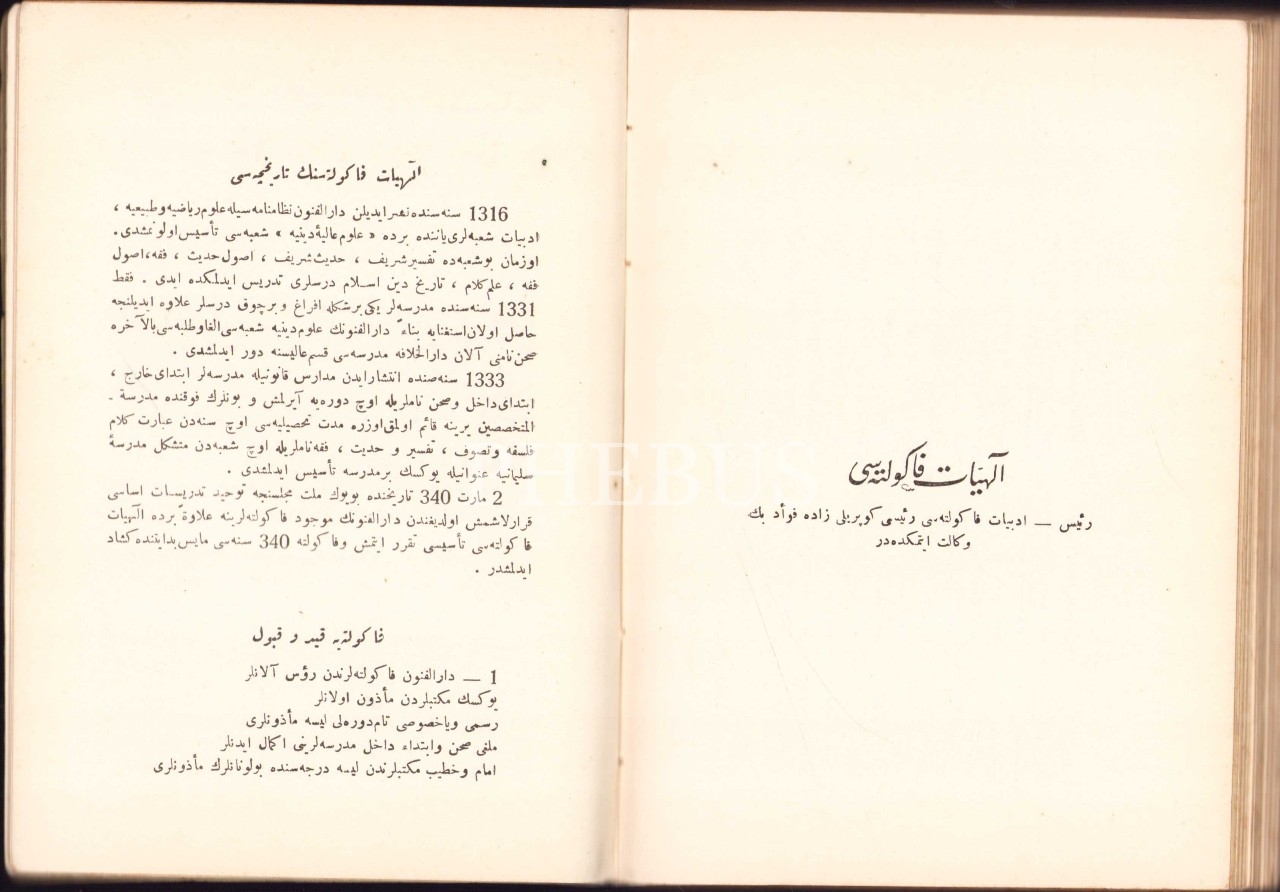 الٓهیات فاکولته‌سی
رئیس — ادبیات فاکولته‌سی رئیسی کوپریلی زاده فوأد بك
وکالت ایتمکده‌در
الٓهیات فاکولته‌سنك تاریخچه‌سی
1316 سنه‌سنده نشر ایدیلن دارالفنون نظامنامه‌سیله علوم ریاضیه و طبیعیه ،
ادبیات شعبه‌لری یاننده برده « علوم عالیهٔ دینیه » شعبه‌سی تأسیس اولونمشدی.
اوزمان بوشعبه‌ده تفسیر شریف ، حدیث شریف ، اصول حدیث ، فقه، اصول
فقه ، علم کلام ، تاریخ دین اسلام درسلری تدریس ایدلمکده ایدی . فقط
1331 سنه‌سنده مدرسه‌لر یکی برشکله افراغ و برچوق درسلر علاوه ایدیلنجه
حاصل اولان استغنایه بناءً دارالفنونك علوم دینیه شعبه‌سی الغا و طلبه‌سی بالآخره
صحن نامنی آلان دارالخلافه مدرسه‌سی قسم عالیسنه دور ایدلمشدی .
1333 سنه‌صنده انتشار ایدن مدارس قانونیله مدرسه‌لر ابتدای خارج ،
ابتدای داخل و صحن ناملریله اوچ دوره‌یه آیرلمش و بونلرك فوقنده مدرسة ـ
المتخصصین یرینه قائم اولمق اوزره مدت تحصیلیه‌سی اوچ سنه‌دن عبارت کلام
فلسفه و تصوف ، تفسیر و حدیث ، فقه ناملریله اوچ شعبه‌دن متشکل مدرسهٔ
سلیمانیه عنوانیله یوکسك برمدرسه تأسیس ایدلمشدی .
2 مارت 340 تاریخنده بویوك ملت مجلسنجه توحید تدریسات اساسی
قرارلاشمش اولدیغندن دارالفنونك موجود فاکولته‌لرینه علاوةً برده الٓهیات
فاکولته‌سی تأسیسی تقرر ایتمش و فاکولته 340 سنه‌سی مایس بدایتنده کشاد
ایدلمشدر .
فاکولته‌یه قید و قبول
1 — دارالفنون فاکولته‌لرندن رؤس آلانلر
یوکسك مکتبلردن مأذون اولانلر
رسمی ویاخصوصی تام دوره‌لی لیسه مأذونلری
ملغی صحن و ابتداء داخل مدرسه‌لرینی اکمال ایدنلر
امام و خطیب مکتبلرندن لیسه درجه‌سنده بولونانلرك مأذونلری
HEBUS